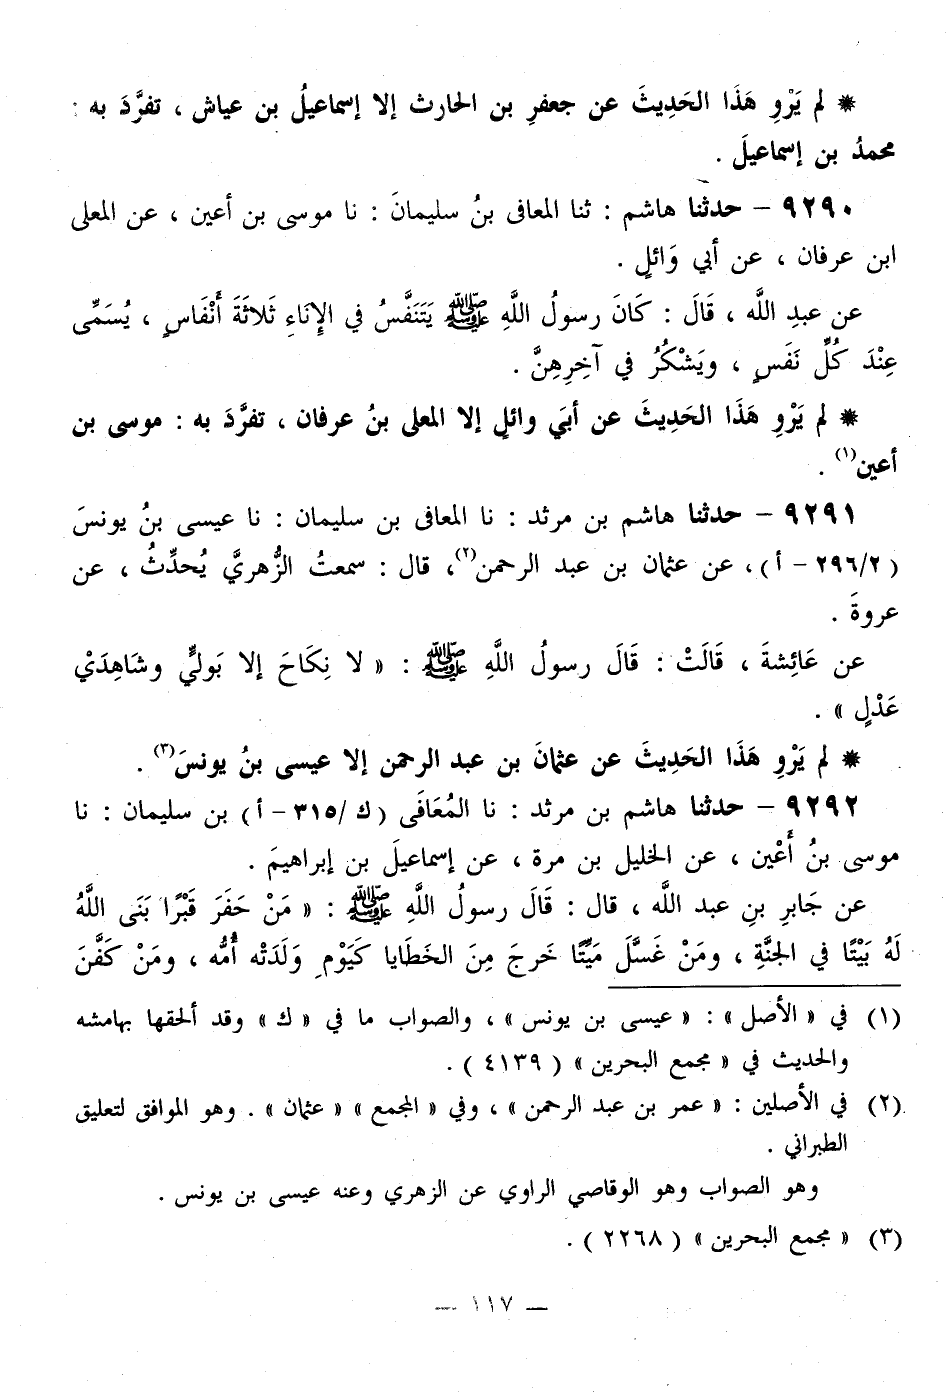 * لم يَرْوِ هَذَا الحَدِيثَ عن جعفرِ بن الحارث إلا إسماعيلُ بن عياش ، تفرَّدَ به :
محمدُ بن إسماعيلَ .
٩٢٩٠ – حدثنا هاشم : ثنا المعافى بنُ سليمانَ : نا موسى بن أعين ، عن المعلى
ابن عرفان ، عن أبي وَائلٍ .
عن عبدِ اللَّه ، قَالَ : كَانَ رسولُ اللَّهِ ﷺ يَتَنَفَّسُ في الإِنَاءِ ثَلاثَةَ أَنْفَاسٍ ، يُسَمِّى
عِنْدَ كُلِّ نَفَسٍ ، ويَشْكُرُ في آخِرِهِنَّ .
* لم يَرْوِ هَذَا الحَدِيثَ عن أبَي وائلٍ إلا المعلى بنُ عرفان ، تفرَّدَ به : موسى بن
أعين(١) .
٩٢٩١ – حدثنا هاشم بن مرثد : نا المعافى بن سليمان : نا عيسى بنُ يونسَ
( ٢٩٦/٢ – أ ) ، عن عثمان بن عبد الرحمن(٢)، قال : سمعتُ الزُّهريَّ يُحدِّثُ ، عن
عروةَ .
عن عَائِشةَ ، قَالَتْ : قَالَ رسولُ اللَّهِ ﷺ : « لا نِكَاحَ إلا بَوليٍّ وشَاهِدَيْ
عَدْلٍ » .
* لم يَرْوِ هَذَا الحَدِيثَ عن عثمانَ بن عبد الرحمن إلا عيسى بنُ يونسَ(٣) .
٩٢٩٢ – حدثنا هاشم بن مرثد : نا المُعَافَى ( ك /٣١٥ – أ ) بن سليمان : نا
موسى بنُ أَعْين ، عن الخليل بن مرة ، عن إسماعيلَ بن إبراهيمَ .
عن جَابرِ بنِ عبد اللَّه ، قال : قَالَ رسولُ اللَّهِ ﷺ : « مَنْ حَفَرَ قَبْرًا بَنَى اللَّهُ
لَهُ بَيْتًا في الجنَّةِ ، ومَنْ غَسَّلَ مَيِّتًا خَرجَ مِنَ الخَطَايا كَيَوْمِ وَلَدَتْه أُمُّه ، ومَنْ كَفَّنَ
(١) في « الأصل » : « عيسى بن يونس » ، والصواب ما في « ك » وقد ألحقها بهامشه
والحديث في « مجمع البحرين » ( ٤١٣٩ ) .
(٢) في الأصلين : « عمر بن عبد الرحمن » ، وفي « المجمع » « عثمان » . وهو الموافق لتعليق
الطبراني .
وهو الصواب وهو الوقاصي الراوي عن الزهري وعنه عيسى بن يونس .
(٣) « مجمع البحرين » ( ٢٢٦٨ ) .
— ١١٧ —